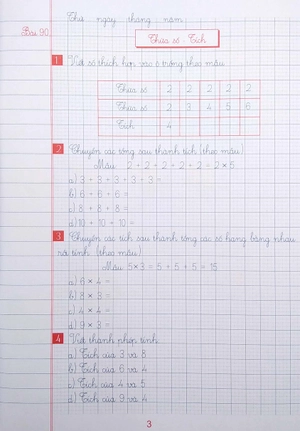 Thứ ngày tháng năm
Bài 90 Thừa số - Tích
1 Viết số thích hợp vào ô trống theo mẫu
Thừa số 2 2 2 2 2
Thừa số 2 3 4 5 6
Tích 4
2 Chuyển các tổng sau thành tích (theo mẫu)
Mẫu 2 + 2 + 2 + 2 + 2 = 2 × 5
a) 3 + 3 + 3 + 3 + 3 =
b) 6 + 6 + 6 =
c) 8 + 8 + 8 =
d) 10 + 10 + 10 =
3 Chuyển các tích sau thành tổng các số hạng bằng nhau
rồi tính (theo mẫu)
Mẫu 5 × 3 = 5 + 5 + 5 = 15
a) 6 × 4 =
b) 8 × 3 =
c) 4 × 4 =
d) 9 × 3 =
4 Viết thành phép tính
a) Tích của 3 và 8
b) Tích của 6 và 4
c) Tích của 4 và 5
d) Tích của 9 và 4
3